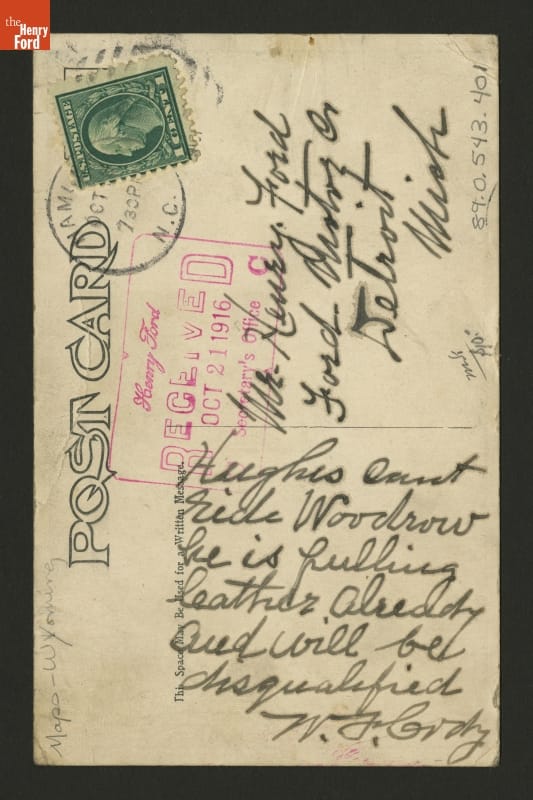 the
Henry
Ford
POST CARD
U.S. POSTAGE
OCT
730P
N.C.
Henry Ford
RECEIVED
OCT 21 1916
Secretary's Office
C
Mr Henry Ford
Ford Motor Co
Detroit
Mich
89.0.543.401
This Space May Be Used for a Written Message.
Hughes cant
ride Woodrow
he is pulling
leather already
and will be
disqualified
W. F. Cody
Maps - Wyoming